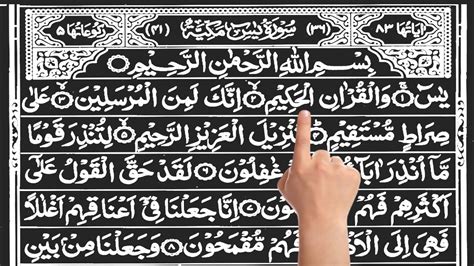 اٰيَاتُهَا ٨٣ (٣٦) سُوْرَةُ يٰسٓ مَكِّيَّةٌ (٤١) رُكُوْعَاتُهَا ٥
بِسْمِ اللّٰهِ الرَّحْمٰنِ الرَّحِيْمِ
يٰسٓ ۚ﴿١﴾ وَالْقُرْاٰنِ الْحَكِيْمِ ۙ﴿٢﴾ اِنَّكَ لَمِنَ الْمُرْسَلِيْنَ ۙ﴿٣﴾ عَلٰى
صِرَاطٍ مُّسْتَقِيْمٍ ؕ﴿٤﴾ تَنْزِيْلَ الْعَزِيْزِ الرَّحِيْمِ ۙ﴿٥﴾ لِتُنْذِرَ قَوْمًا
مَّاۤ اُنْذِرَ غٰفِلُوْنَ ﴿٦﴾ لَقَدْ حَقَّ الْقَوْلُ عَلٰۤى
اَكْثَرِهِمْ فَهُمْ ﴿٧﴾ اِنَّا جَعَلْنَا فِيْۤ اَعْنَاقِهِمْ اَغْلٰلًا
فَهِيَ اِلَى فَهُمْ مُّقْمَحُوْنَ ﴿٨﴾ وَجَعَلْنَا مِنْۢ بَيْنِ